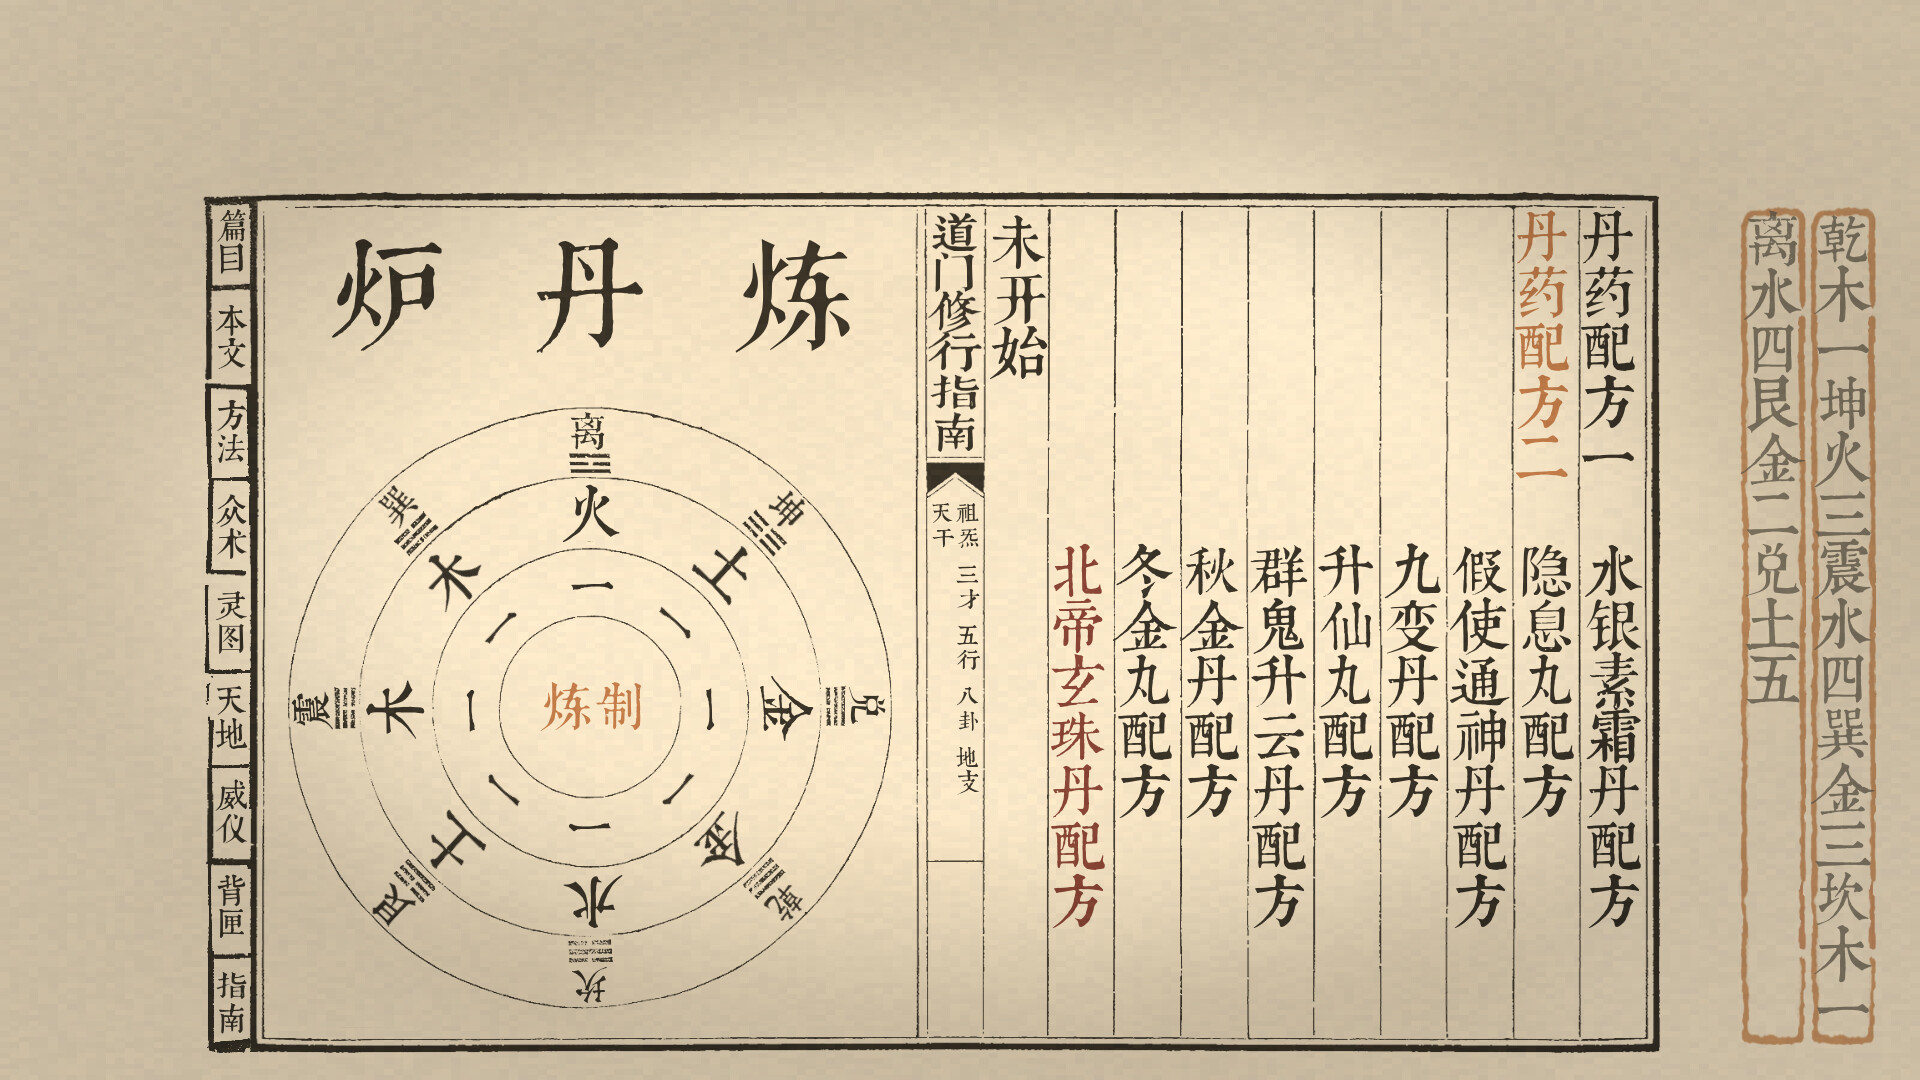 乾木一坤火三震水四巽金三坎木一
离水四艮金二兑土五
丹药配方一
水银素霜丹配方
丹药配方二
隐息丸配方
假使通神丹配方
九变丹配方
升仙丸配方
群鬼升云丹配方
秋金丹配方
冬金丸配方
北帝玄珠丹配方
未开始
道门修行指南
祖炁 三才 五行 八卦 地支
天干
炼丹炉
离
火
一
坤
土
一
兑
金
一
乾
金
一
坎
水
一
艮
土
一
震
木
一
巽
木
一
炼制
篇目
本文
方法
众术
灵图
天地
威仪
背匣
指南